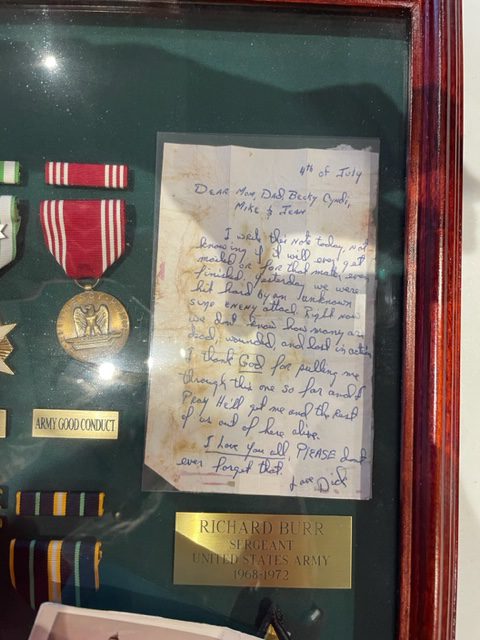 4th of July
Dear Mom, Dad, Becky, Cyndi,
Mike & Jean
I write this note today, not
knowing if it will ever get
mailed or for that matter even
finished. Yesterday we were
hit hard by an unknown
size enemy attack. Right now
we dont know how many are
dead, wounded, and lost in action
I thank God for pulling me
through this one so far and I
Pray He'll get me and the rest
of us out of here alive.
I love you all PLEASE dont
ever forget that.
Love Dick
ARMY GOOD CONDUCT
RICHARD BURR
SERGEANT
UNITED STATES ARMY
1968-1972